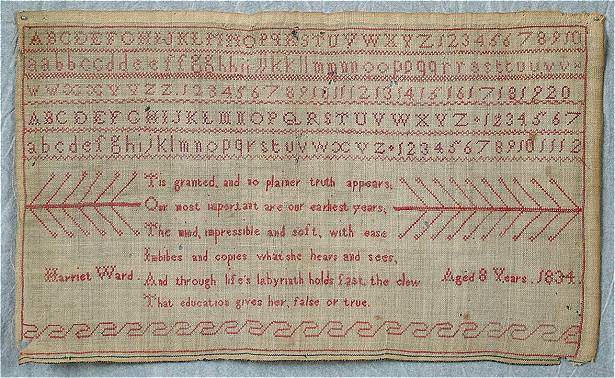 A B C D E F G H I J K L M N O P Q R S T U V W X Y Z 1 2 3 4 5 6 7 8 9 10
a a b b c c d d e e f f g g h h i j k k l l m m n n o o p p q q r r s t t u u v v
w w x x y y z z 1 2 3 4 5 6 7 8 9 10 11 12 13 14 15 16 17 18 19 20
A B C D E F G H I J K L M N O P Q R S T U V W X Y Z 1 2 3 4 5 6 7
a b c d e f g h i j k l m n o p q r s t u v w x y z 1 2 3 4 5 6 7 8 9 10 11 12
Tis granted, and no plainer truth appears,
Our most important are our earliest years,
The mind, impressible and soft, with ease
Imbibes and copies what she hears and sees,
Harriet Ward. And through life's labyrinth holds fast, the clew Aged 8 Years. 1834.
That education gives her, false or true.